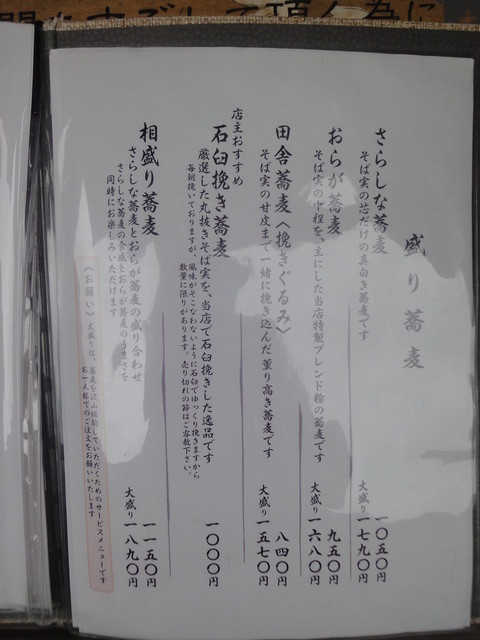 盛り蕎麦
さらしな蕎麦
そば実の芯だけの真白き蕎麦です
一〇五〇円
大盛り一七九〇円
おらが蕎麦
そば実の中程を、主にした当店特製ブレンド粉の蕎麦です
九五〇円
大盛り一六八〇円
田舎蕎麦〈挽きぐるみ〉
そば実の甘皮まで一緒に挽き込んだ薫り高き蕎麦です
八四〇円
大盛り一五七〇円
店主おすすめ
石臼挽き蕎麦
厳選した丸抜きそば実を、当店で石臼挽きした逸品です
毎朝挽いておりますが、風味がそこなわないように石臼でゆっくり挽きますから
数量に限りがあります。売り切れの節はご容赦下さい。
一〇〇〇円
相盛り蕎麦
さらしな蕎麦とおらが蕎麦の盛り合わせ
さらしな蕎麦の食感とおらが蕎麦のうまさを
同時にお楽しみいただけます
一一五〇円
大盛り一八九〇円
〈お願い〉大盛りは、蕎麦を沢山採食していただくためのサービスメニューです
お一人様でのご注文をお願いいたします